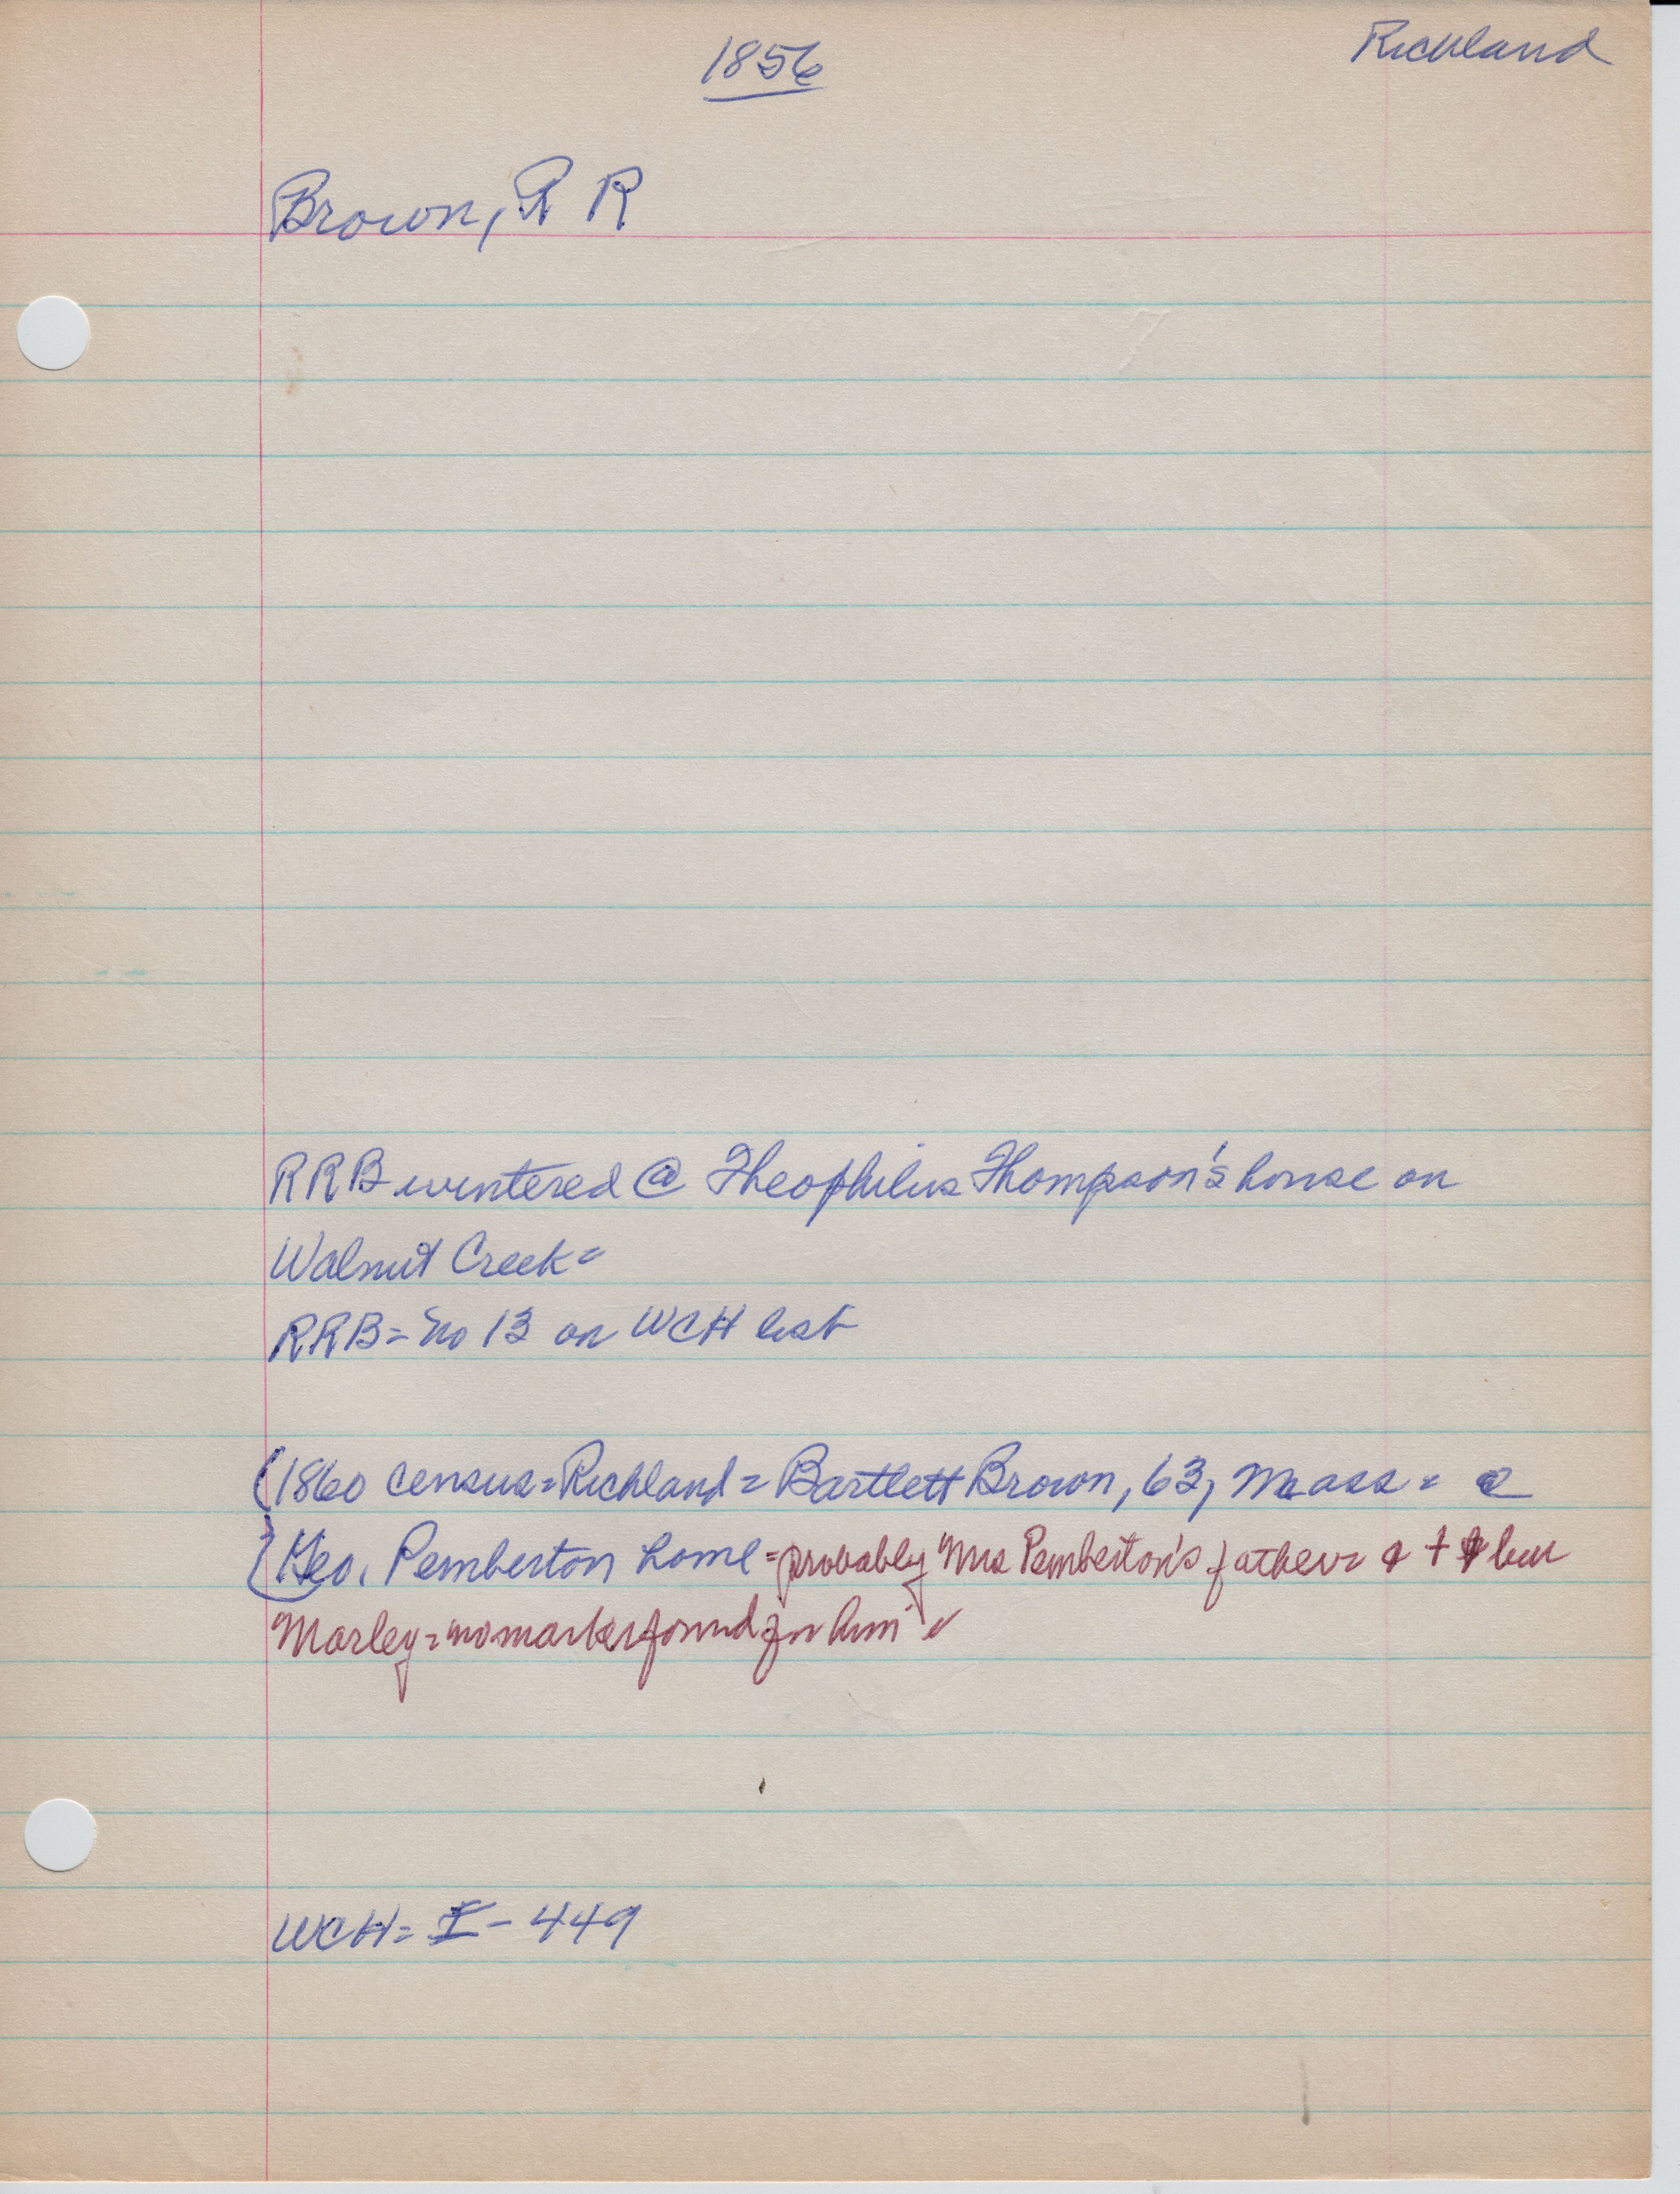 1856
Richland
Brown, R R
RRB wintered @ Theophilus Thompson's house on
Walnut Creek =
RRB = No 13 on WCH list
(1860 census = Richland = Bartlett Brown, 63, Mass = @
Geo. Pemberton home = probably Mrs Pemberton's father =
Marley = no marker found for him =
WCH = I - 449